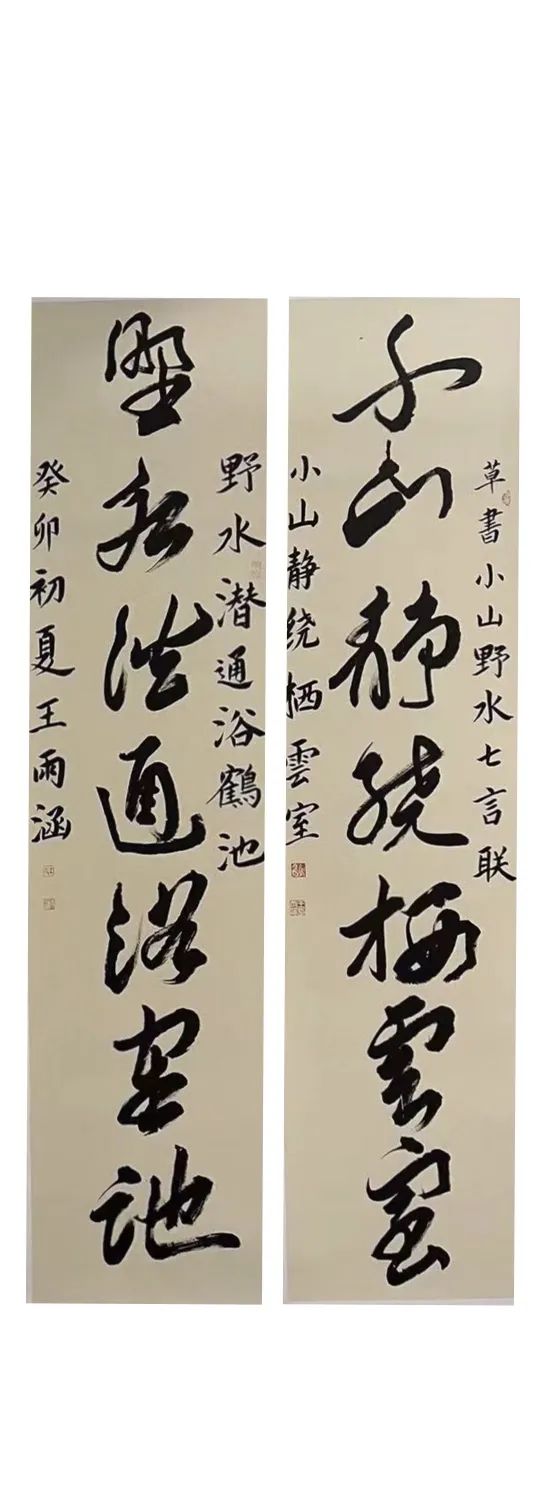 草書小山野水七言联
小山静绕栖雲室
小山静绕栖雲室
野水潜通浴鶴池
野水潜通浴鶴池
癸卯初夏王雨涵